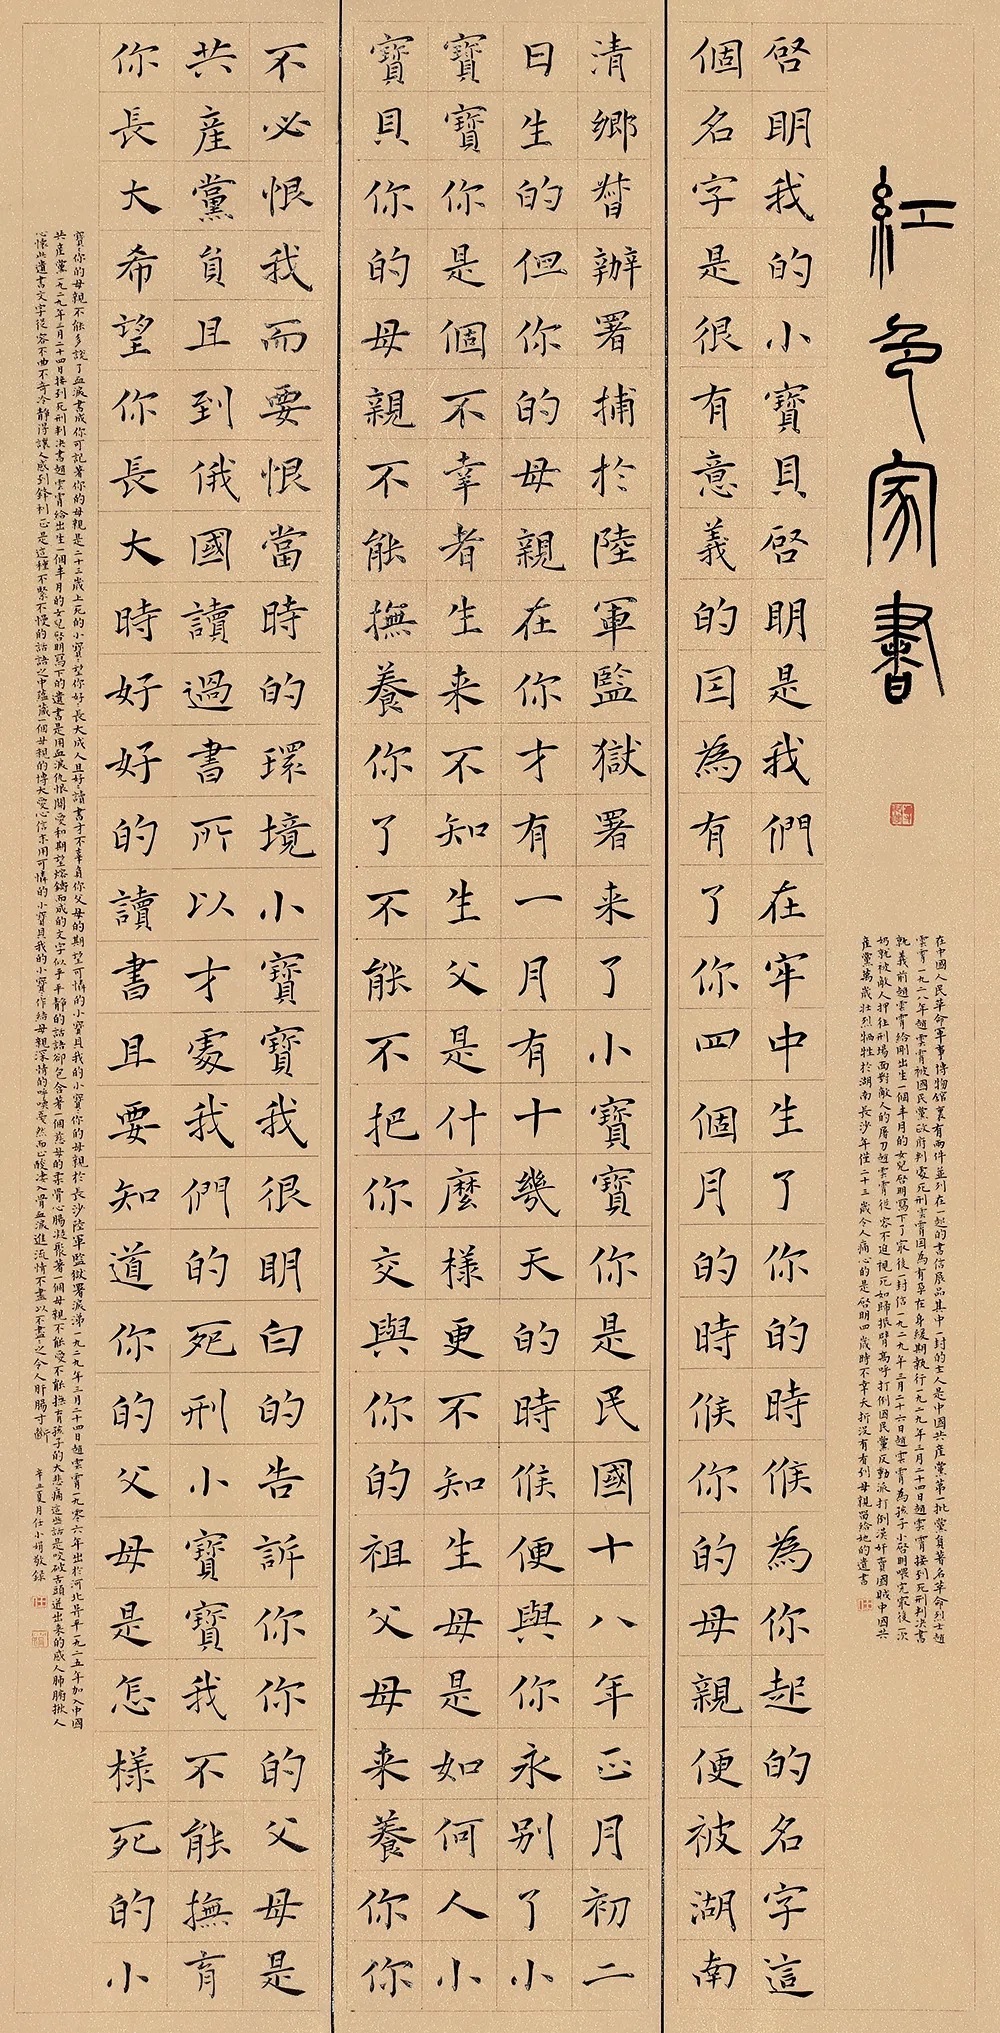 紅色家書
在中國人民革命軍事博物館裏有兩件並列在一起的書信展品其中一封的主人是中國共產黨第一批黨員著名革命烈士趙
雲霄一九二八年趙雲霄被國民黨政府判處死刑雲霄因為有孕在身緩期執行一九二九年三月二十四日趙雲霄接到死刑判決書
就義前趙雲霄給剛出生一個半月的女兒啓明寫下了最後一封信一九二九年三月二十六日趙雲霄為孩子小啓明喂完最後一次
奶就被敵人押往刑場面對敵人的屠刀趙雲霄從容不迫視死如歸振臂高呼打倒國民黨反動派打倒漢奸賣國賊中國共
產黨萬歲壯烈犧牲於湖南長沙年僅二十三歲令人痛心的是啓明四歲時不幸夭折沒有看到母親留給她的遺書
啓明我的小寶貝啓明是我們在牢中生了你的時候為你起的名字這
個名字是很有意義的因為有了你四個月的時候你的母親便被湖南
清鄉督辦署捕於陸軍監獄署来了小寶寶你是民國十八年正月初二
日生的但你的母親在你才有一月有十幾天的時候便與你永别了小
寶寶你是個不幸者生来不知生父是什麼樣更不知生母是如何人小
寶貝你的母親不能撫養你了不能不把你交與你的祖父母来養你你
不必恨我而要恨當時的環境小寶寶我很明白的告訴你你的父母是
共產黨員且到俄國讀過書所以才處我們的死刑小寶寶我不能撫育
你長大希望你長大時好好的讀書且要知道你的父母是怎樣死的小
寶寶你的母親不能多談了血淚書成你可記著你的母親是二十三歲上死的小寶寶望你好好長大成人且好好讀書才不辜負你父母的期望可憐的小寶貝我的小寶寶你的母親於長沙陸軍監獄署淚涕一九二九年三月二十四日趙雲霄一九零六年出於河北阜平一九二五年加入中國
共產黨一九二九年三月二十四日接到死刑判決書趙雲霄給出生一個半月的女兒啓明寫下的遺書是用血淚仇恨關愛和期望熔鑄而成的文字似乎平靜的話語卻包含著一個慈母的柔骨心腸凝聚著一個母親不能愛不能撫育孩子的大悲痛這些話是咬破舌頭道出来的感人肺腑揪人
心懷此遺書文字從容不曲不奇冷靜得讓人感到鋒利正是這種不緊不慢的話語之中蘊藏一個母親的博大愛心信末用可憐的小寶貝我的小寶寶作結母親深情的呼喚戛然而止酸凄入骨血淚進流情不盡以不盡盡之令人肝腸寸斷 辛丑夏月任小娟敬錄